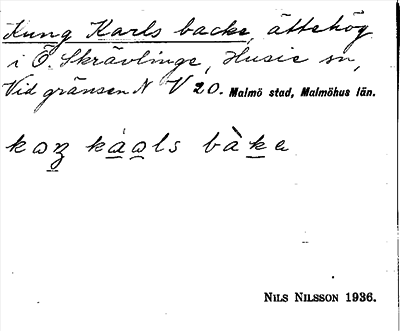 Kung Karls backe, ättehög
i Ö. Skrävlinge, Husie sn,
Vid gränsen N V 20. Malmö stad, Malmöhus län.
kaᶇ káals bàke
NILS NILSSON 1936.